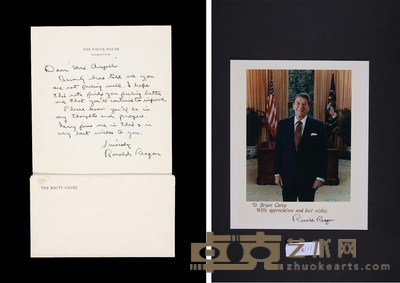 THE WHITE HOUSE
WASHINGTON
Dear Mrs. Angelo
Beverly has told me you
are not feeling well. I hope
this note finds you feeling better
and that you'll continue to improve.
Please know you'll be in
my thoughts and prayers.
Nancy joins me in this & in
very best wishes to you.
Sincerely
Ronald Reagan
THE WHITE HOUSE
To Brian Carey
With appreciation and best wishes
Ronald Reagan
艺术网
zhuokearts.com